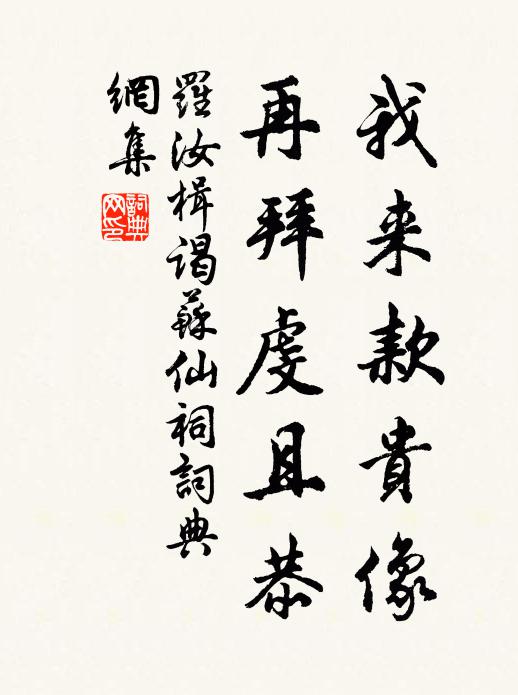 我来款貴像
再拜虔且恭
羅汝楫謁蘇仙祠詞典
網集
詞典
网印